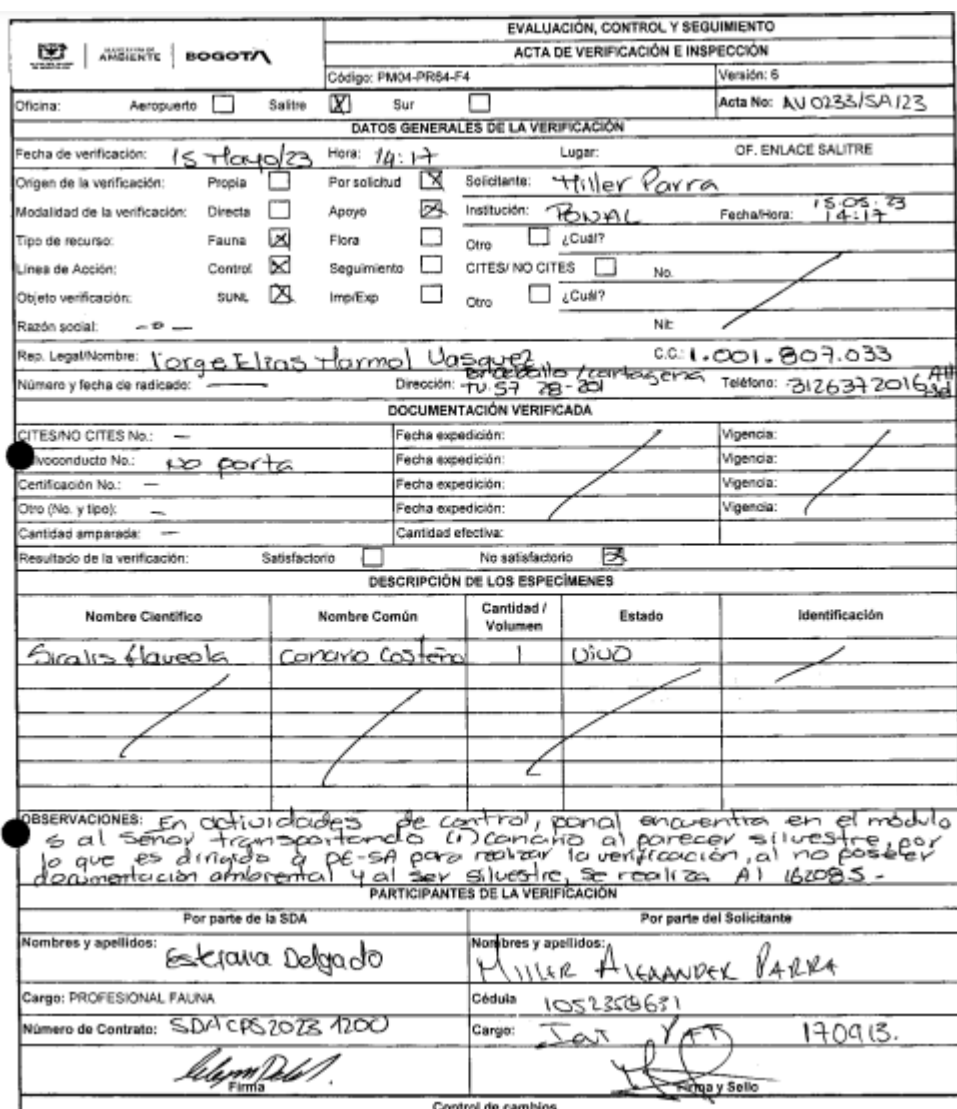 EVALUACIÓN, CONTROL Y SEGUIMIENTO
AMBIENTE BOGOTA
ACTA DE VERIFICACIÓN E INSPECCIÓN
Código: PM04-PR64-F4 Versión: 6
Oficina: Aeropuerto Salitre X Sur Acta No: AV 0233/SA/23
DATOS GENERALES DE LA VERIFICACIÓN
Fecha de verificación: 15 Mayo/23 Hora: 14:17 Lugar: OF. ENLACE SALITRE
Origen de la verificación: Propia Por solicitud X Solicitante: Miller Parra
Modalidad de la verificación: Directa Apoyo X Institución: PONAL Fecha/Hora: 15.05.23 14:17
Tipo de recurso: Fauna X Flora Otro ¿Cuál?
Línea de Acción: Control X Seguimiento CITES/ NO CITES No.
Objeto verificación: SUNL X Imp/Exp Otro ¿Cuál?
Razón social: -o- Nit:
Rep. Legal/Nombre: Jorge Elias Marmol Vasquez C.C.: 1.001.807.033
Número y fecha de radicado: — Dirección: /cartagena TV 57 28-201 Teléfono: 3126372016
DOCUMENTACIÓN VERIFICADA
CITES/NO CITES No.: — Fecha expedición: Vigencia:
lvoconducto No.: NO porta Fecha expedición: Vigencia:
Certificación No.: — Fecha expedición: Vigencia:
Otro (No. y tipo): — Fecha expedición: Vigencia:
Cantidad amparada: — Cantidad efectiva:
Resultado de la verificación: Satisfactorio No satisfactorio X
DESCRIPCIÓN DE LOS ESPECÍMENES
Nombre Científico Nombre Común Cantidad / Volumen Estado Identificación
Sicalis flaveola Canario Costeño 1 Vivo
OBSERVACIONES: En actividades de control, ponal encuentra en el módulo
5 al señor transportando (1) canario al parecer silvestre, por
lo que es dirigido a PE-SA para realizar la verificación, al no poseer
documentación ambiental y al ser silvestre, se realiza AI 162085.-
PARTICIPANTES DE LA VERIFICACIÓN
Por parte de la SDA Por parte del Solicitante
Nombres y apellidos: Estefania Delgado Nombres y apellidos: MILLER ALEXANDER PARRA
Cargo: PROFESIONAL FAUNA Cédula 1052359631
Número de Contrato: SDACPS2023 1200 Cargo: 170913.
Firma Firma y Sello
Control de cambios